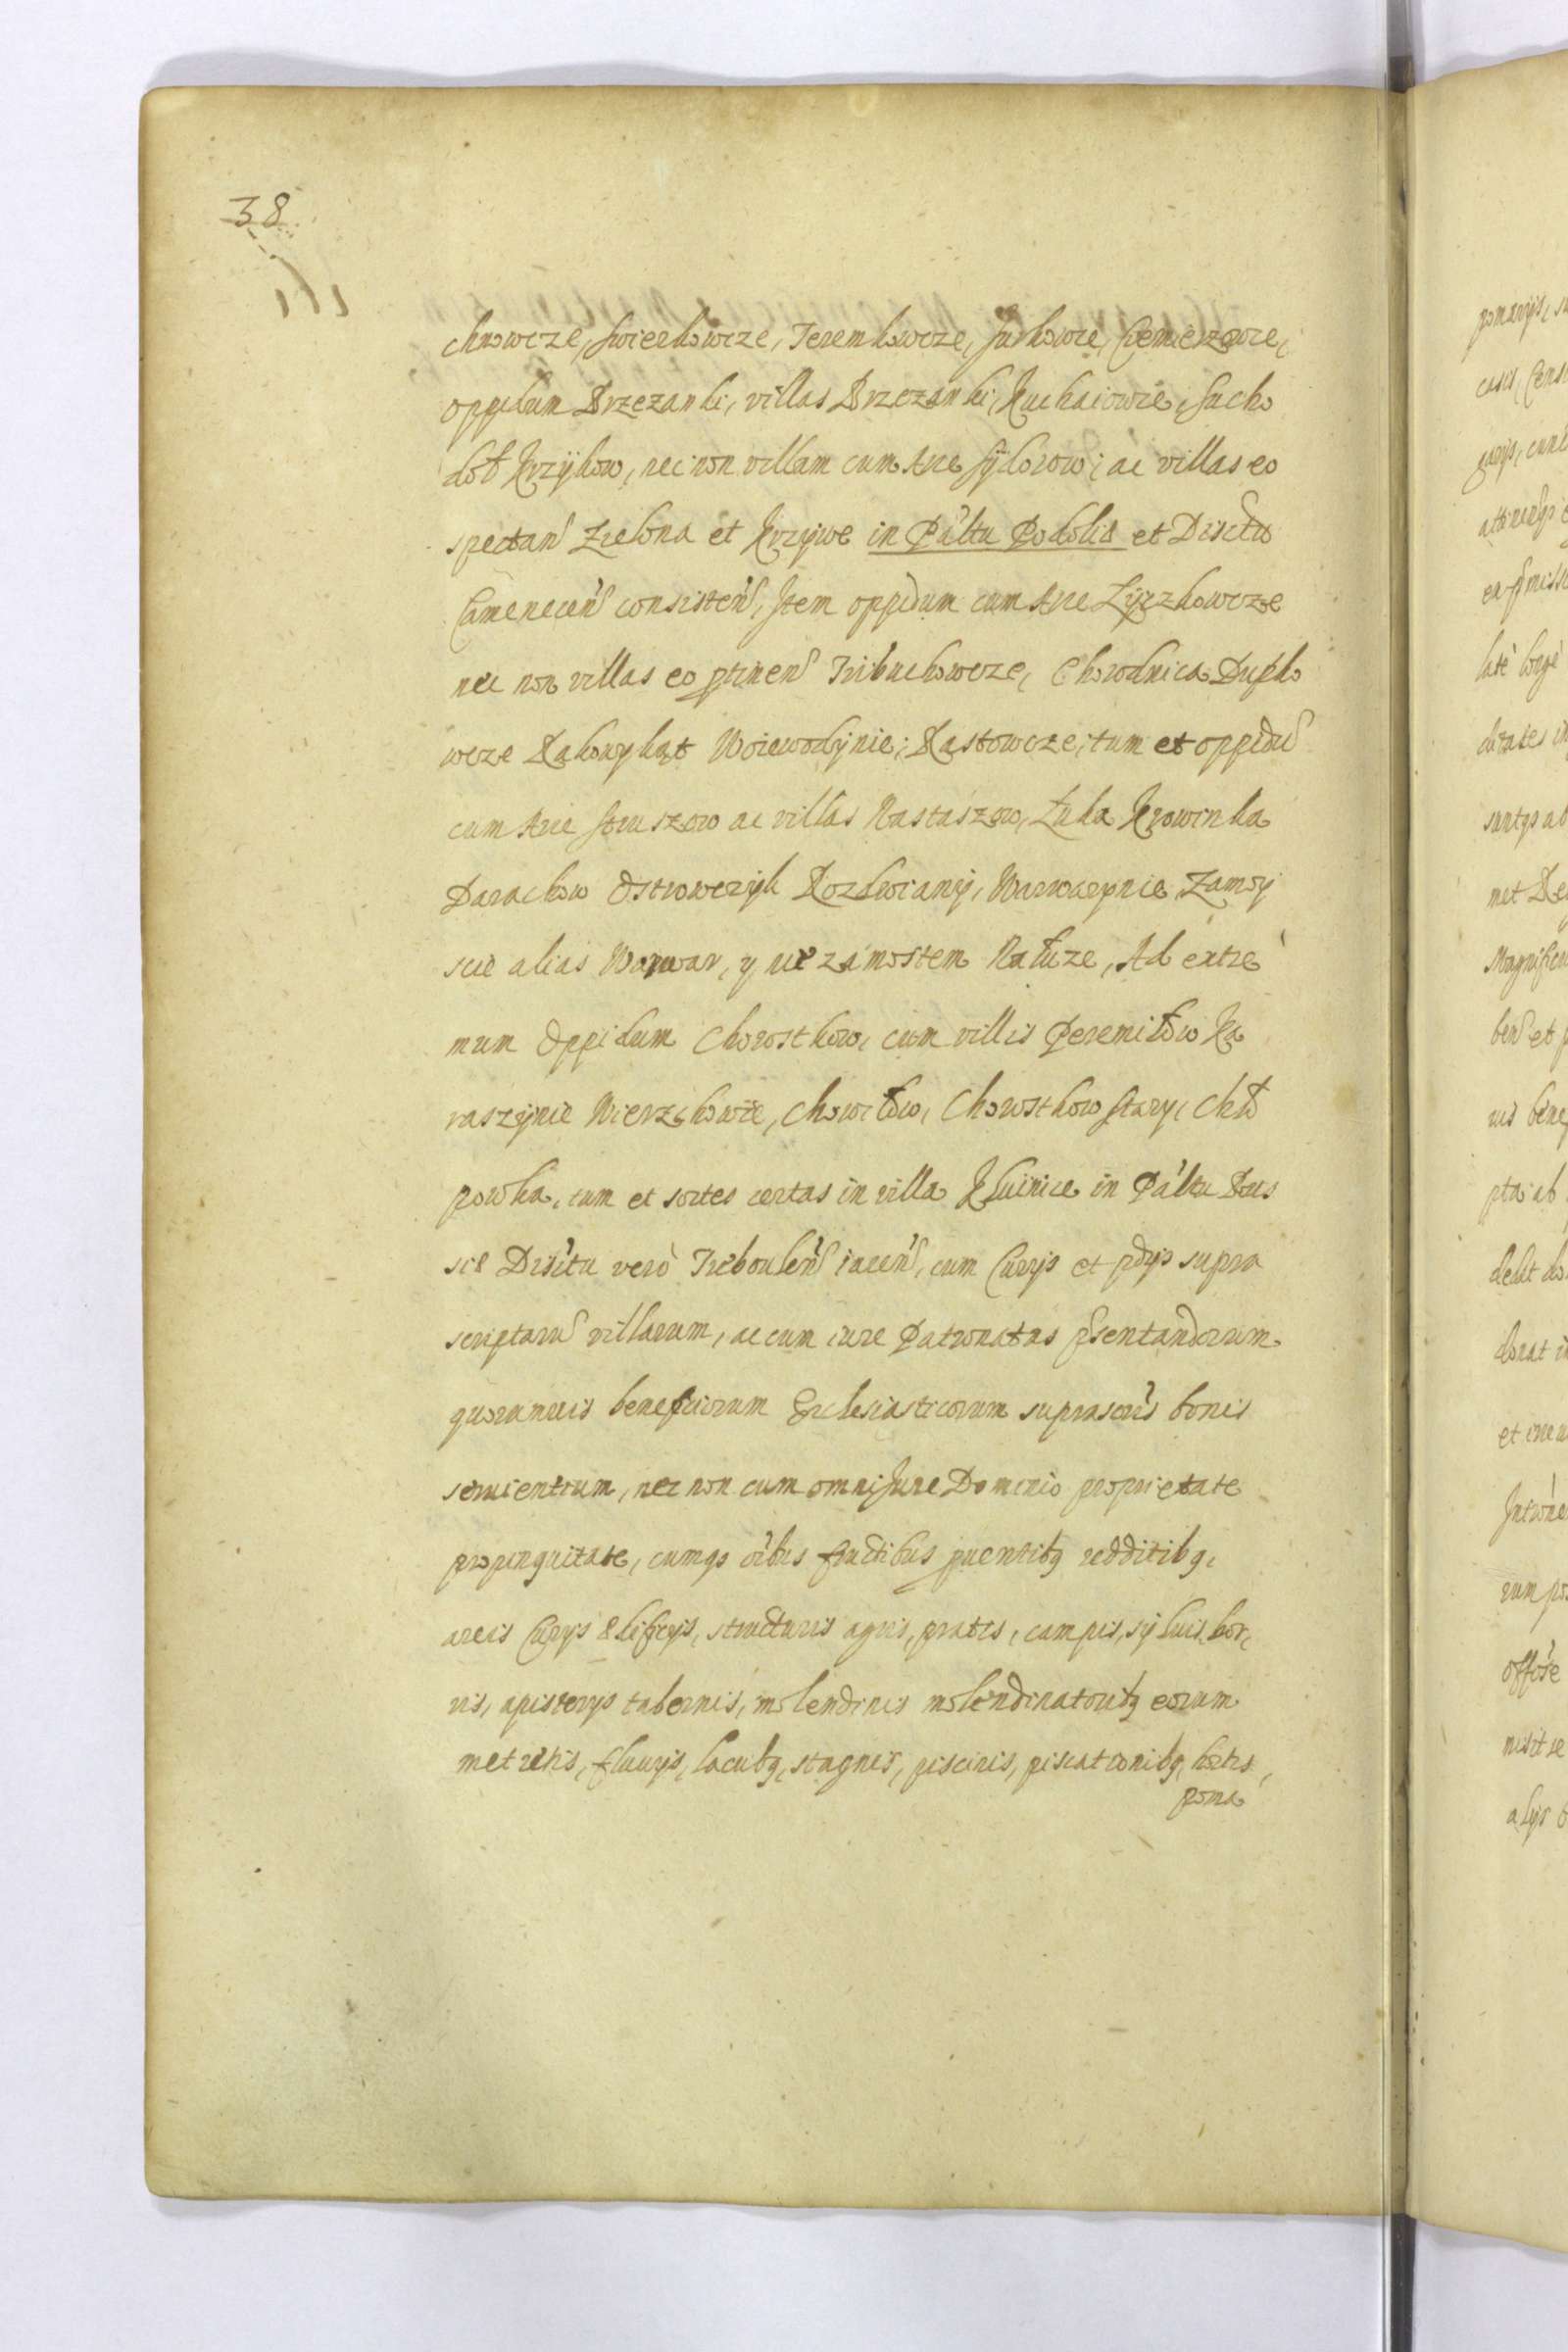 38
chnowcze, Swierkowcze, Jeremkowcze, Surkowce, Ciemierzowce,
oppidum Brzezanki, villas Brzezanki, Kuchaiowce, Sucho
doł Krzykow, nec non villam cum Arce Sydorow; ac villas eo
spectan Zielona et Krzywe in Pâltu Podoliæ et Disctu
Camenecen consisten, Item oppidum cum Arce Lyczkowcze
nec non villas eo ptinen Tribuchowcze, Chorodnica Dupko
wcze Rakowykąt Woiewodynie; Rastowcze, tum et oppidu
cum Arce Struszow ac villas Nastaszow, Łuka Krowinka
Darachow Ostrowczyk Rozdwiany, Warwarynce Zamoy
scie alias Warwar, y ue zamostem Nałuze, Ad extre
mum Oppidum Chorostkow, cum villis Peremiłow Ka
raszynie Wierzchowce, Chowiłow, Chorostkow Stary, Chło
powka, tum et sortes certas in villa Kluince in Pâltu Rus
siæ Disctu verò Treboulen iacen, cum Curys et pdys supra
scriptaru villarum, ac cum iure Patronatus psentandorum
quorumuis beneficiorum Ecclesiasticorum suprascris bonis
seruientium, nec non cum omni Jure Dominio proprietate
propinquitate, cumqs oîbus fructibus puentibq redditibq,
areis Curys ædificys, structuris agris, pratis, campis, syluis, bor,
ris, apisterys tabernis, molendinis molendinatoribq eorum
metretis, fluuys, lacubq, stagnis, piscinis, piscationibq, hortis,
poma